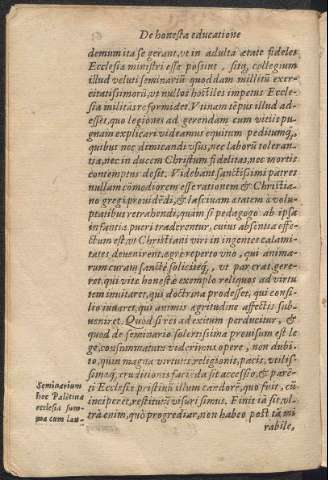 De honesta educatione
demum ita se gerant, vt in adulta ætate fideles
Ecclesiæ ministri esse possint, sitq́; collegium
illud veluti seminariũ quoddam militũ exer-
citatissimorũ, vt nullos hostiles impetus Eccle-
sia militãs reformidet. Vtinam tẽpus illud ad-
esset, quo legiones ad gerendam cum vitiis pu-
gnam explicari videamus equitum peditumq́;,
quibus nec dimicandi vsus, nec laborũ toleran-
tia, nec in ducem Christum fidelitas, nec mortis
contemptus desit. Videbant sanctissimi patres
nullam cõmodiorem esse rationem & Christia-
no gregi prouidẽdi, & lasciuam ætatem à volu-
ptatibus retrahendi, quàm si pedagogo ab ipsa
infantia pueri traderentur, cuius absentia effe-
ctum est, vt Christiani viri in ingentes calami-
tates deuenirent, ægre reperto vno, qui anima-
rum curam sanctè solliciteq́;, vt par erat, gere-
ret, qui vitæ honestæ exemplo reliquos ad virtu
tem inuitaret, qui doctrina prodesset, qui consi-
lio iuuaret, qui animis ægritudine affectis sub-
ueniret. Quod si res ad exitum perducitur, &
quod de seminario solertissimè prouisum est le
ge, consummatum viderimus opere, non dubi-
to, quin magna virtutis, religionis, pacis, vtilis-
simæq́; eruditionis faciẽda sit accessio, & parẽ-
ti Ecclesiæ pristinũ illum candorẽ, quo fuit, cũ
inciperet, restitutũ visuri simus. Finit iã sit, vl-
trà enim, quò progrediar, non habeo post tā mi
rabile,
Seminarium
hoc Palatina
ecclesia sum-
ma cum lau-